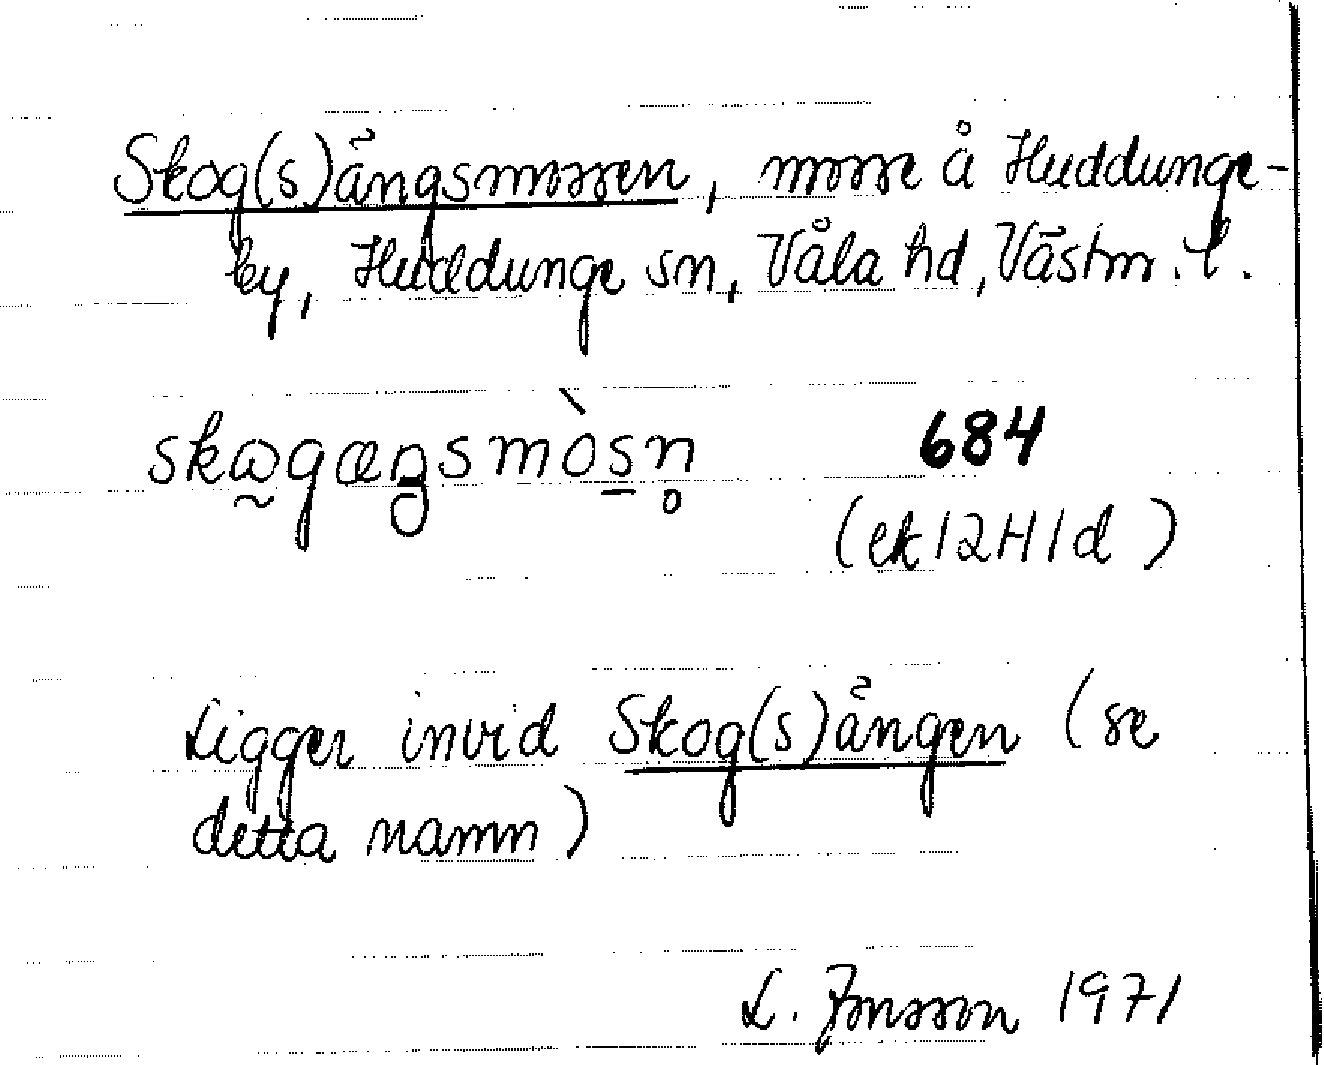 Skog(s)ängsmossen, mosse å Huddunge-
by, Huddunge sn, Våla hd, Västm. l.
skωgæŋsmòsn̥ 684
(ek 12H1d)
Ligger invid Skog(s)ängen (se
detta namn)
L. Jonsson 1971